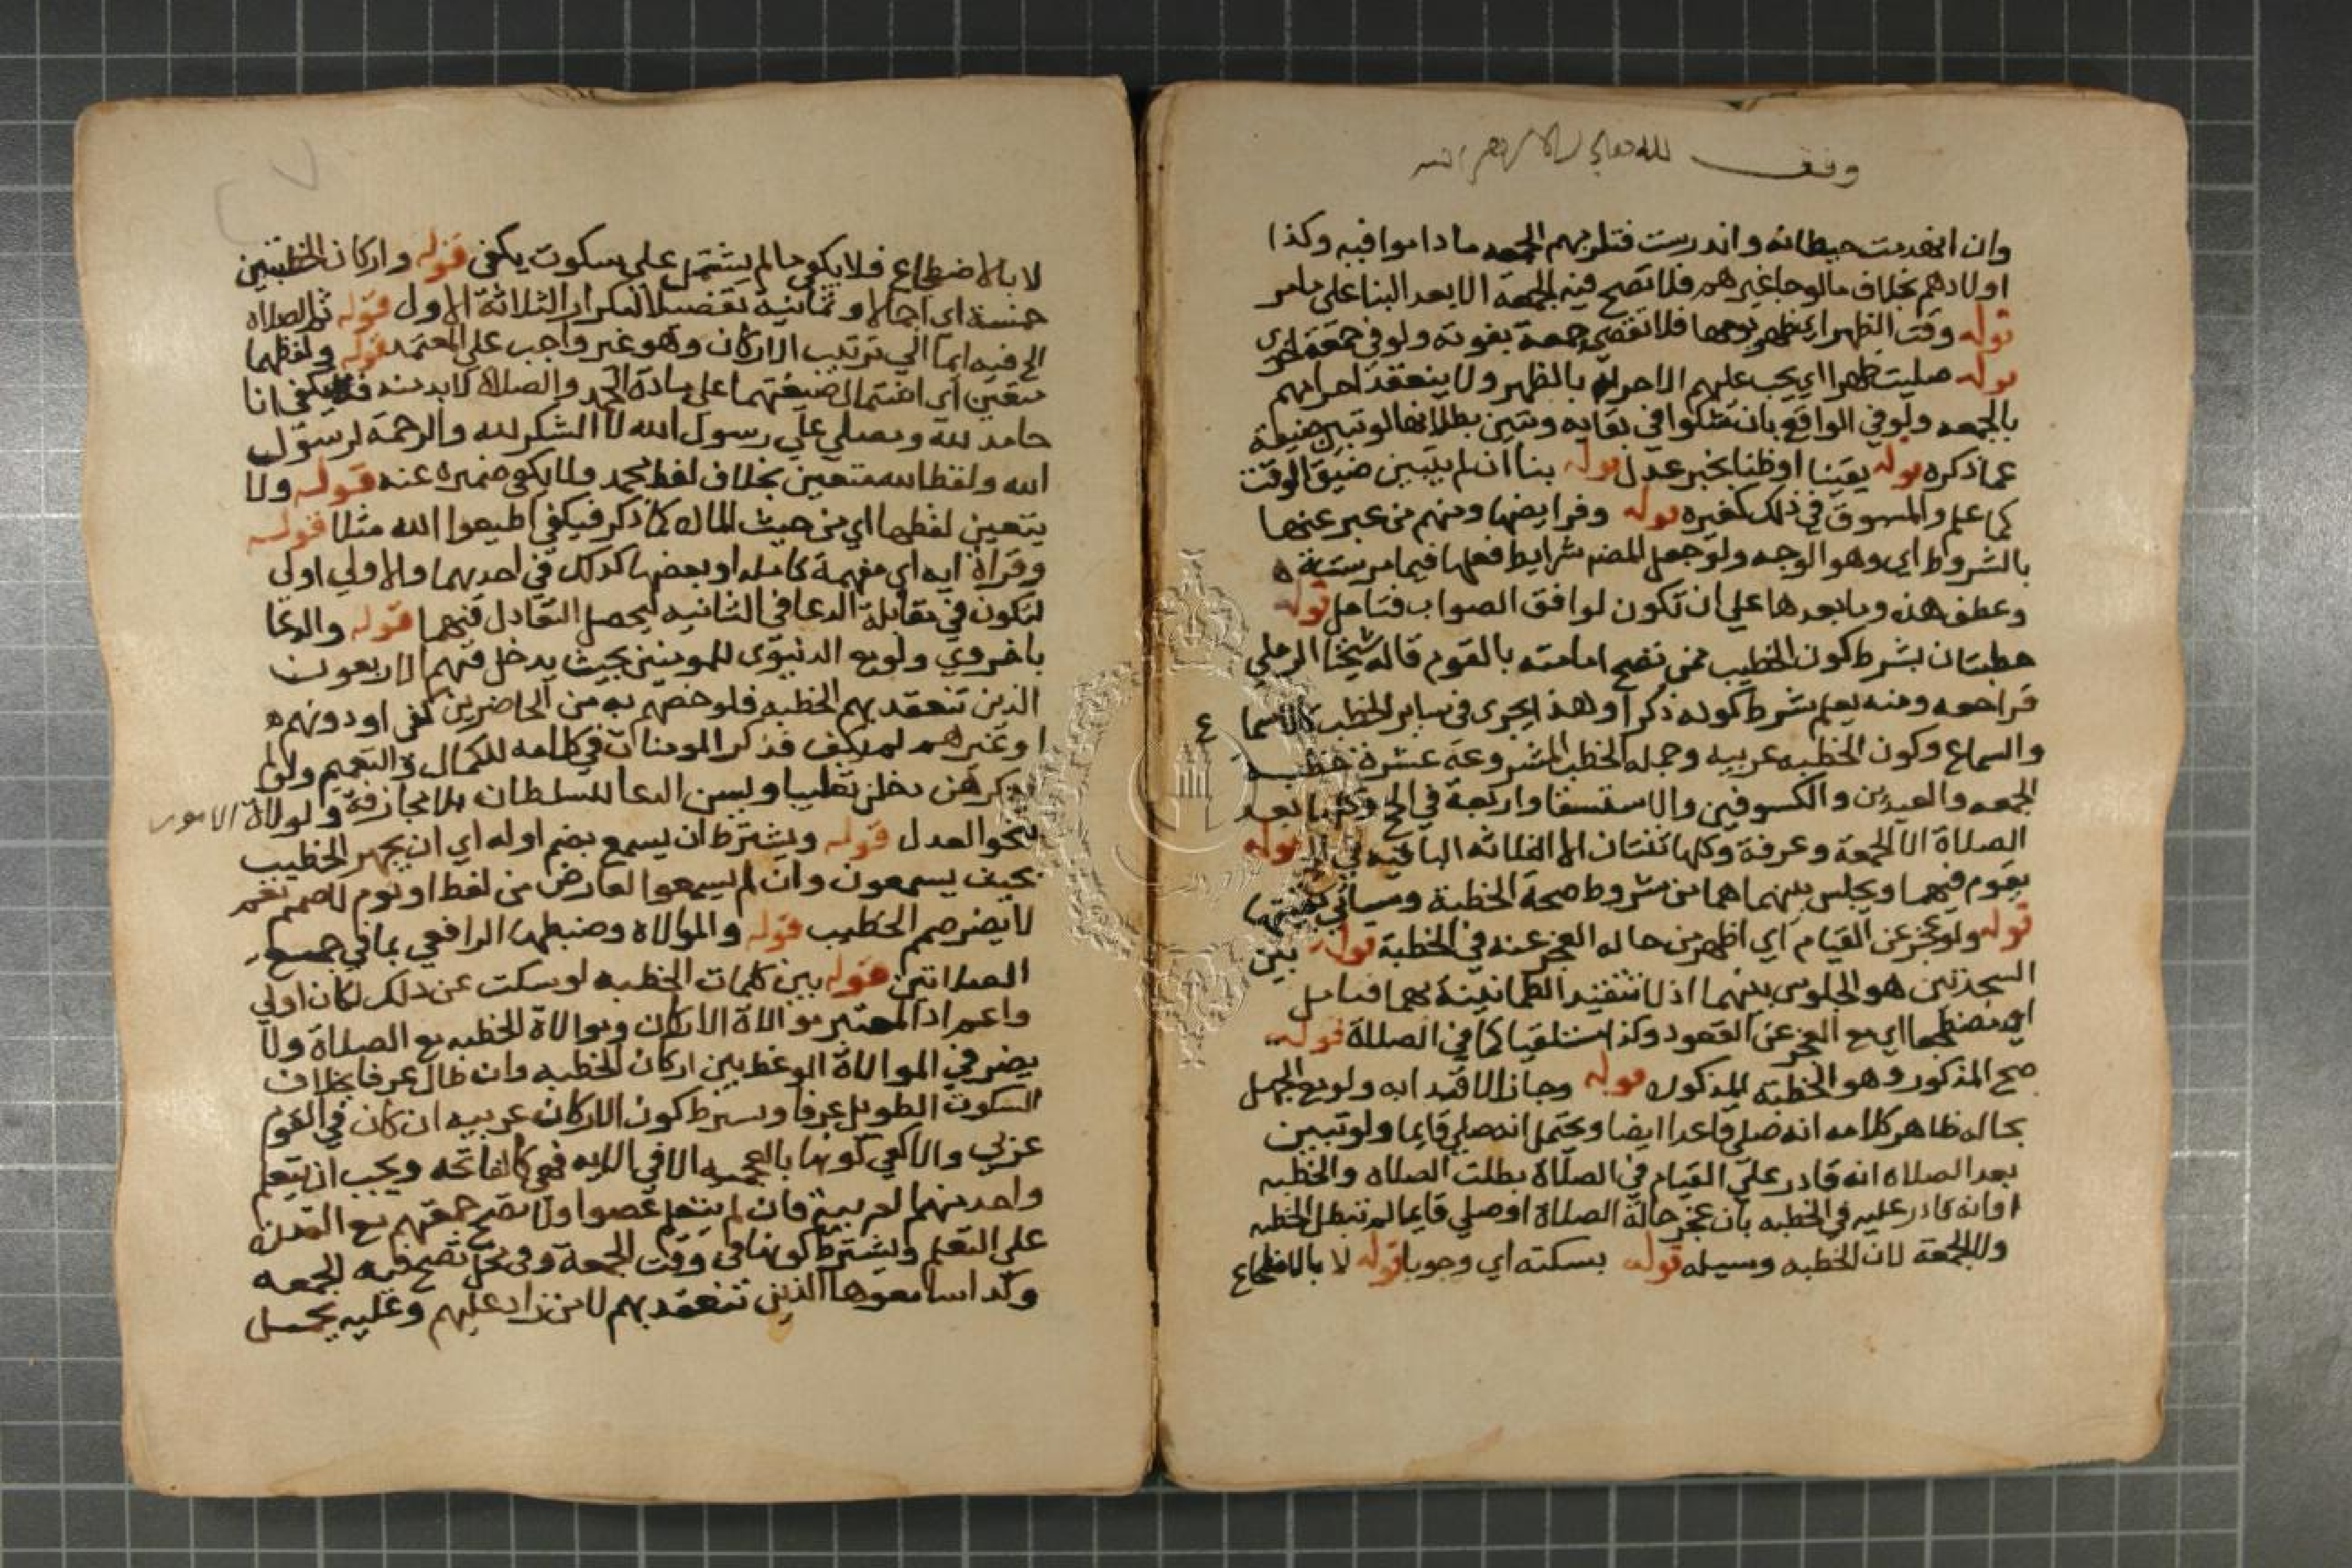 وقف لله تعالى
وان انهدمت حيطانه واندرست فتلزمهم الجمعه ما داموا فيه وكذا
اولادهم بخلاف ما لو جا غيرهم فلا تصح فيه الجمعة الا بعد البنا على ما مر
قوله وقت الظهر اي ظهر يومها فلا تقضى جمعة بفوته ولو في جمعة اخرى
قوله صليت ظهرا اي يجب عليهم الاحرام بالظهر ولا ينعقد احرامهم
بالجمعه ولو في الواقع بان شكوا في بقايه وتبين بطلانها لو تبين ضيقه
عما ذكره قوله يقينا او ظنا بخبر عدل قوله بنا ان لم يتبين ضيق الوقت
كما علم والمسبوق في ذلك كغيره قوله وفرايضها ومنهم من عبر عنها
بالشروط اي وهو الوجه ولو جعل المصنف شرايط فعلها فيما مر ستة
وعطف هذه وما بعدها على ان تكون لوافق الصواب فتامل قوله
خطبتان بشرط كون الخطيب ممن تصح امامته بالقوم قاله شيخنا الرملي
فراجعه ومنه يعلم شرط كونه ذكرا وهذا يجرى في ساير الخطب كالاسماع
والسماع وكون الخطبه عربيه وجمله الخطب المشروعة عشرة خطبه
الجمعه والعيدين والكسوفين والاستسقا واربعة في الحج وكلها بعد
الصلاة الا الجمعة وعرفة وكلها ثنتان الا الثلاثه الباقيه في الحج قوله
يقوم فيهما ويجلس بينهما هما من شروط صحة الخطبة وسياتي بقيتها
قوله ولو عجز عن القيام اي اظهر من حاله العجز عنه في الخطبة قوله بين
السجدتين هو الجلوس بينهما اذ لا تتقيد الطمانينة بهما فتامل
او مضطجعا اي مع العجز عن القعود وكذا مستلقيا كما في الصلاة قوله
صح المذكور وهو الخطبة المذكورة قوله وجاز الاقتدا به ولو مع الجهل
بحاله ظاهر كلامه انه صلى قاعدا ايضا ويحتمل انه صلى قايما ولو تبين
بعد الصلاه انه قادر على القيام في الصلاة بطلت الصلاه والخطبه
او انه قادر عليه في الخطبه بان عجز حالة الصلاة او صلى قايما لم تبطل الخطبه
ولا الجمعة لان الخطبه وسيله قوله بسكته اي وجوبا قوله لا بالاضطجاع
لا بالاضطجاع فلا يكفي ما لم يشتمل على سكوت يكفى قوله واركان الخطبتين
خمسة اي اجمالا وثمانية تفصيلا لتكرار الثلاثة الاول قوله ثم الصلاه
الخ فيه ايما الي ترتيب الاركان وهو غير واجب على المعتمد قوله ولفظهما
متعين اي اشتمال صيغتهما على مادة الحمد والصلاة لابد منه فيكفي انا
حامد لله ومصلي على رسول الله لا الشكر لله والرحمة لرسول
الله ولفظ الله متعين بخلاف لفظ محمد ولا يكفي ضميره عنه قوله ولا
يتعين لفظها اي من حيث المال كما ذكر فيكفي اطيعوا الله مثلا قوله
وقراة ايه اي مفهمة كامله او بعضها كذلك في احديهما والاولي اولى
لتكون في مقابلة الدعا في الثانيه ليحصل التعادل فيهما قوله والدعا
باخروي ولو مع الدنيوى للمومنين بحيث يدخل فيهم الاربعون
الذين تنعقد بهم الخطبه فلو خصهم به من الحاضرين كفى او دونهم
او غيرهم لم يكف فذكر المومنات في كلامه للكمال والتعميم ولو لم
يذكرهن دخلن تغليبا ويسن الدعا للسلطان بلا مجازفة ولولاة الامور
بنحو العدل قوله ويشترط ان يسمع بضم اوله اي ان يجهر الخطيب
بحيث يسمعون وان لم يسمعوا لعارض من لغط او نوم لا صمم نعم
لا يضر صمم الخطيب قوله والموالاة وضبطها الرافعي بما في جمع
الصلاتين قوله بين كلمات الخطبه لو سكت عن ذلك لكان اولي
واعم اذ المعتبر موالاة الاركان وموالاة الخطبه مع الصلاة ولا
يضر في الموالاة الوعظ بين اركان الخطبه وان طال عرفا بخلاف
السكوت الطويل عرفا ويشترط كون الاركان عربيه ان كان في القوم
عربي والا كفي كونها بالعجميه الا في الايه فهي كالفاتحه ويجب ان يتعلم
واحد منهما العربية فان لم يتعلم عصوا ولا تصح جمعتهم مع القدرة
على التعلم ويشترط كونها في وقت الجمعة وفي محل تصح فيه الجمعه
وكذا سامعوها الذين تنعقد بهم لا من زاد عليهم وعليه يحمل